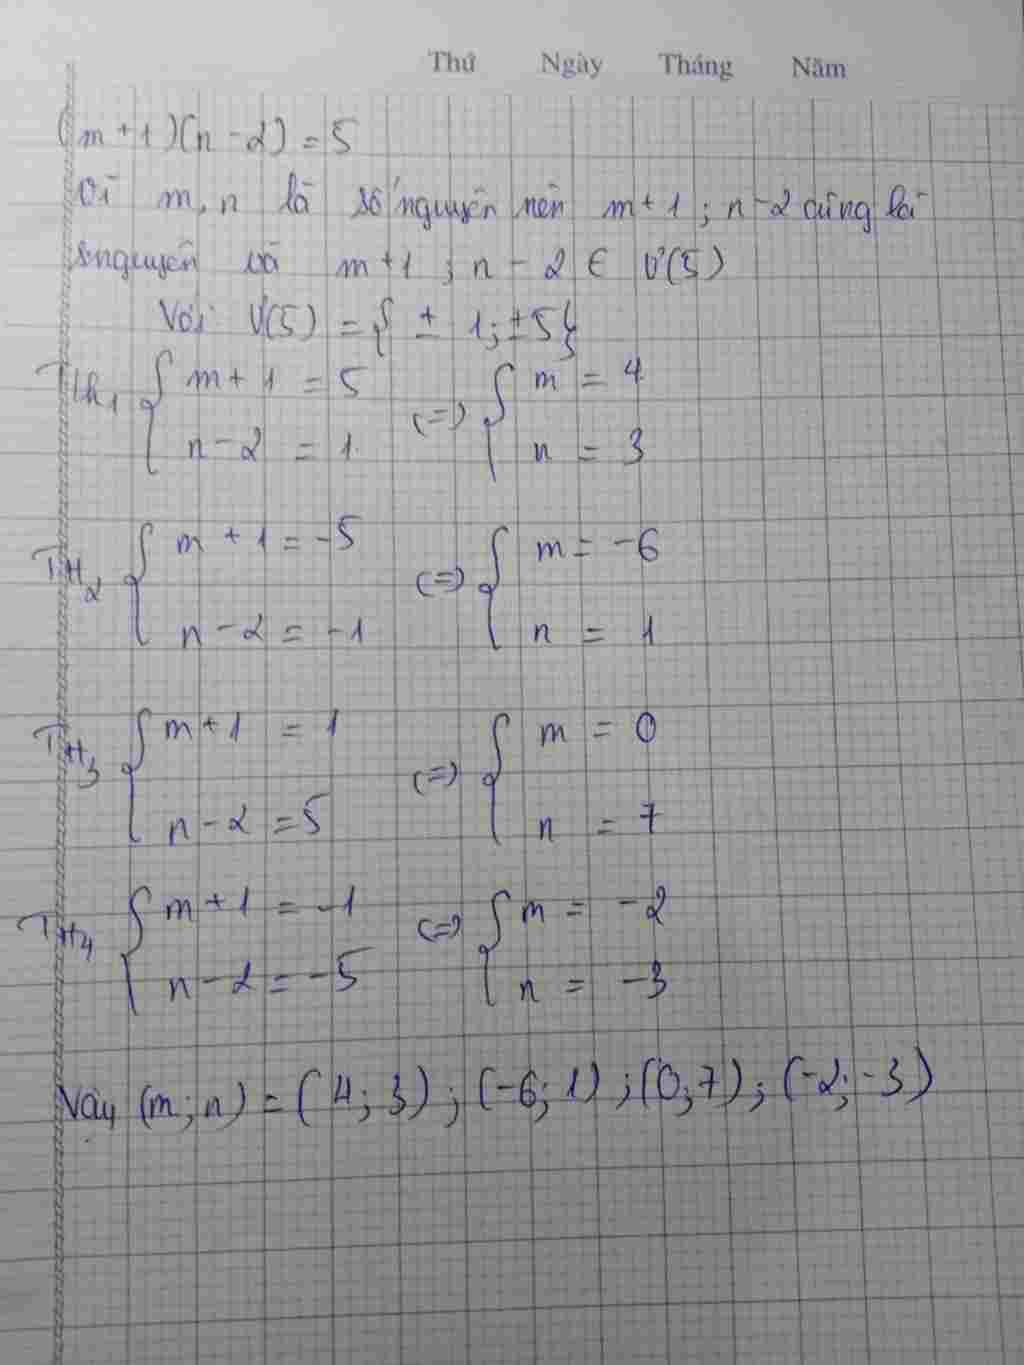 Thứ Ngày Tháng Năm
(m + 1)(n - 2) = 5
Vì m, n là số nguyên nên m + 1 ; n - 2 cũng là
snguyên và m + 1 ; n - 2 ∈ Ư(5)
Với Ư(5) = { ± 1; ±5}
Th1 { m + 1 = 5 (=) { m = 4
n - 2 = 1 n = 3
TH2 { m + 1 = -5 (=) { m = -6
n - 2 = -1 n = 1
TH3 { m + 1 = 1 (=) { m = 0
n - 2 = 5 n = 7
TH4 { m + 1 = -1 (=) { m = -2
n - 2 = -5 n = -3
Vậy (m; n) = (4; 3) ; (-6; 1) ; (0; 7) ; (-2; -3)